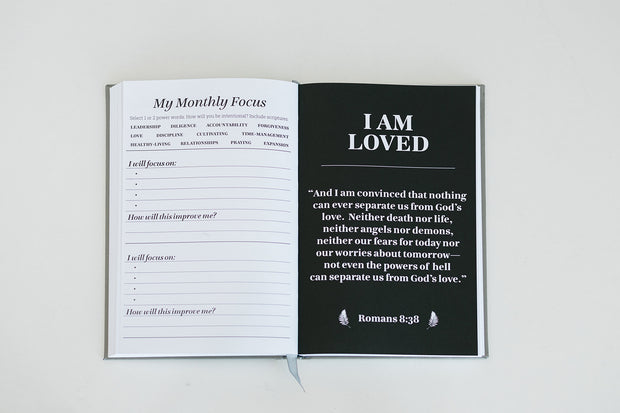 My Monthly Focus
Select 1 or 2 power words. How will you be intentional? Include scriptures.
LEADERSHIP DILIGENCE ACCOUNTABILITY FORGIVENESS
LOVE DISCIPLINE CULTIVATING TIME-MANAGEMENT
HEALTHY-LIVING RELATIONSHIPS PRAYING EXPANSION
I will focus on:
How will this improve me?
I will focus on:
How will this improve me?
I AM
LOVED
“And I am convinced that nothing
can ever separate us from God’s
love. Neither death nor life,
neither angels nor demons,
neither our fears for today nor
our worries about tomorrow—
not even the powers of hell
can separate us from God’s love.”
Romans 8:38